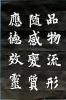 品物流形
隨感變質
應德效靈